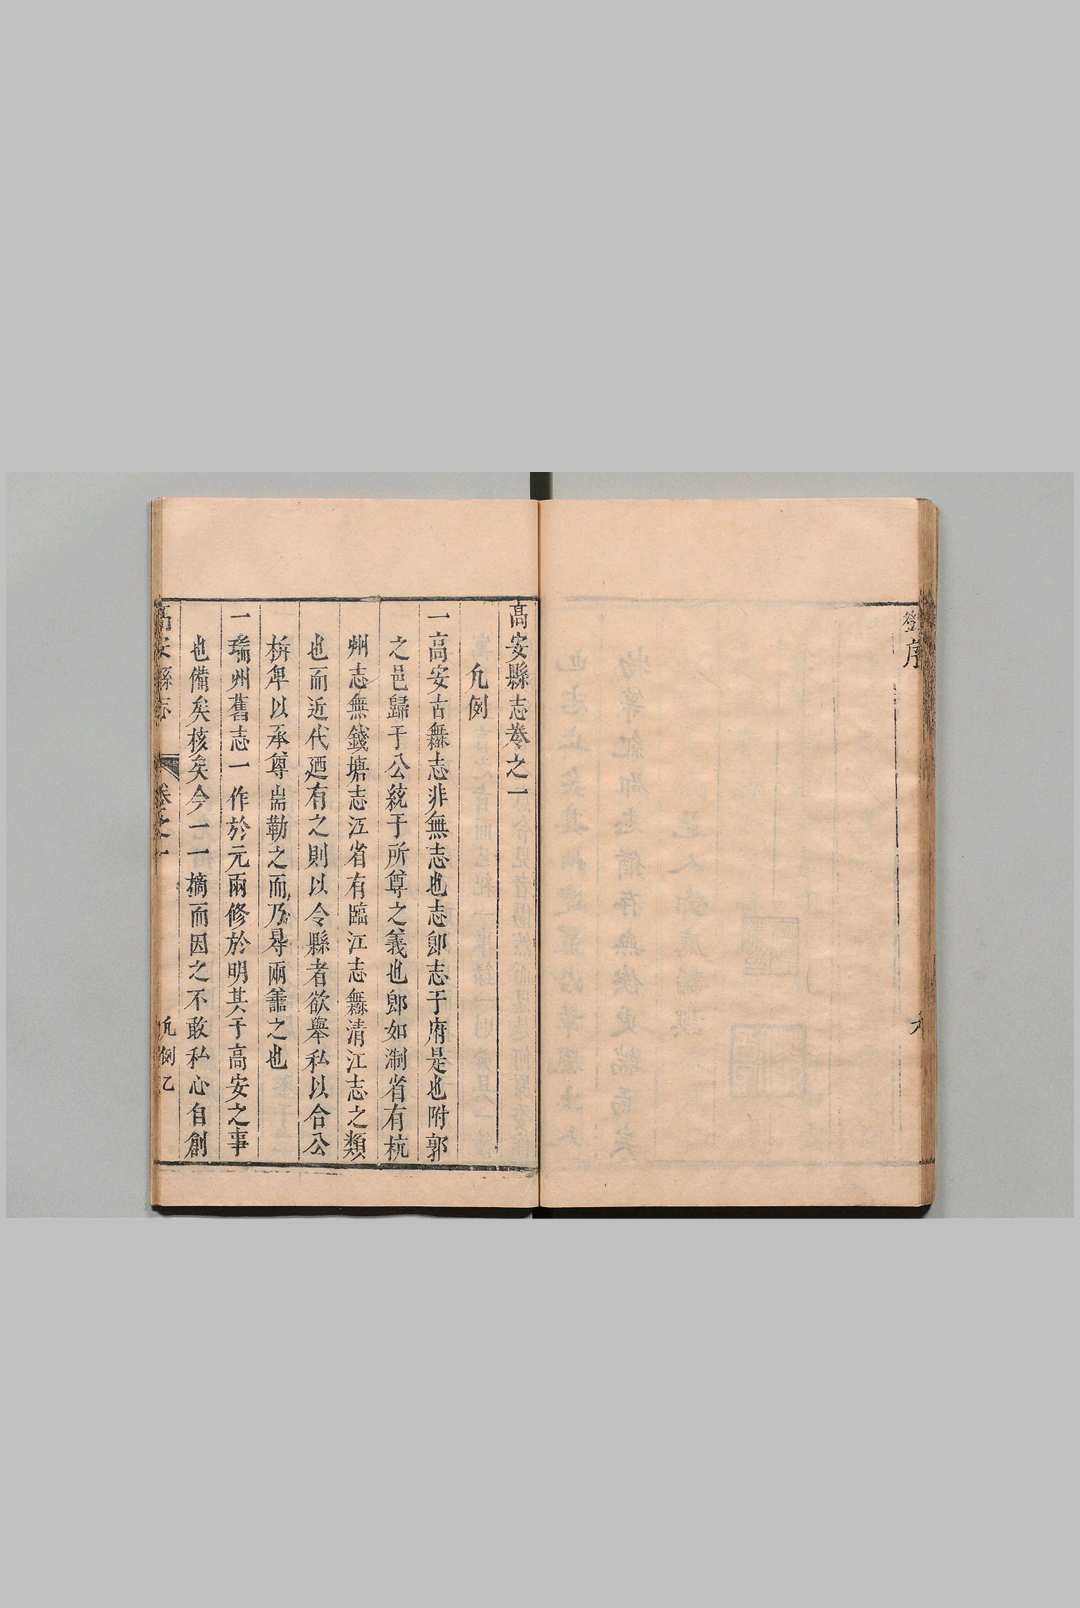 序
高安縣志卷之一
凡例
一高安古無志非無志也志郎志于府是也附郭
之邑歸于公統于所尊之義也郎如淛省有杭
州志無錢塘志江省有臨江志無清江志之類
也而近代廼有之則以令縣者欲舉私以合公
析卑以承尊耑勒之而乃尋兩葢之也
一瑞州舊志一作於元兩修於明其于高安之事
也備矣核矣今一一摘而因之不敢私心自創
高安縣志
卷之一
凡例乙